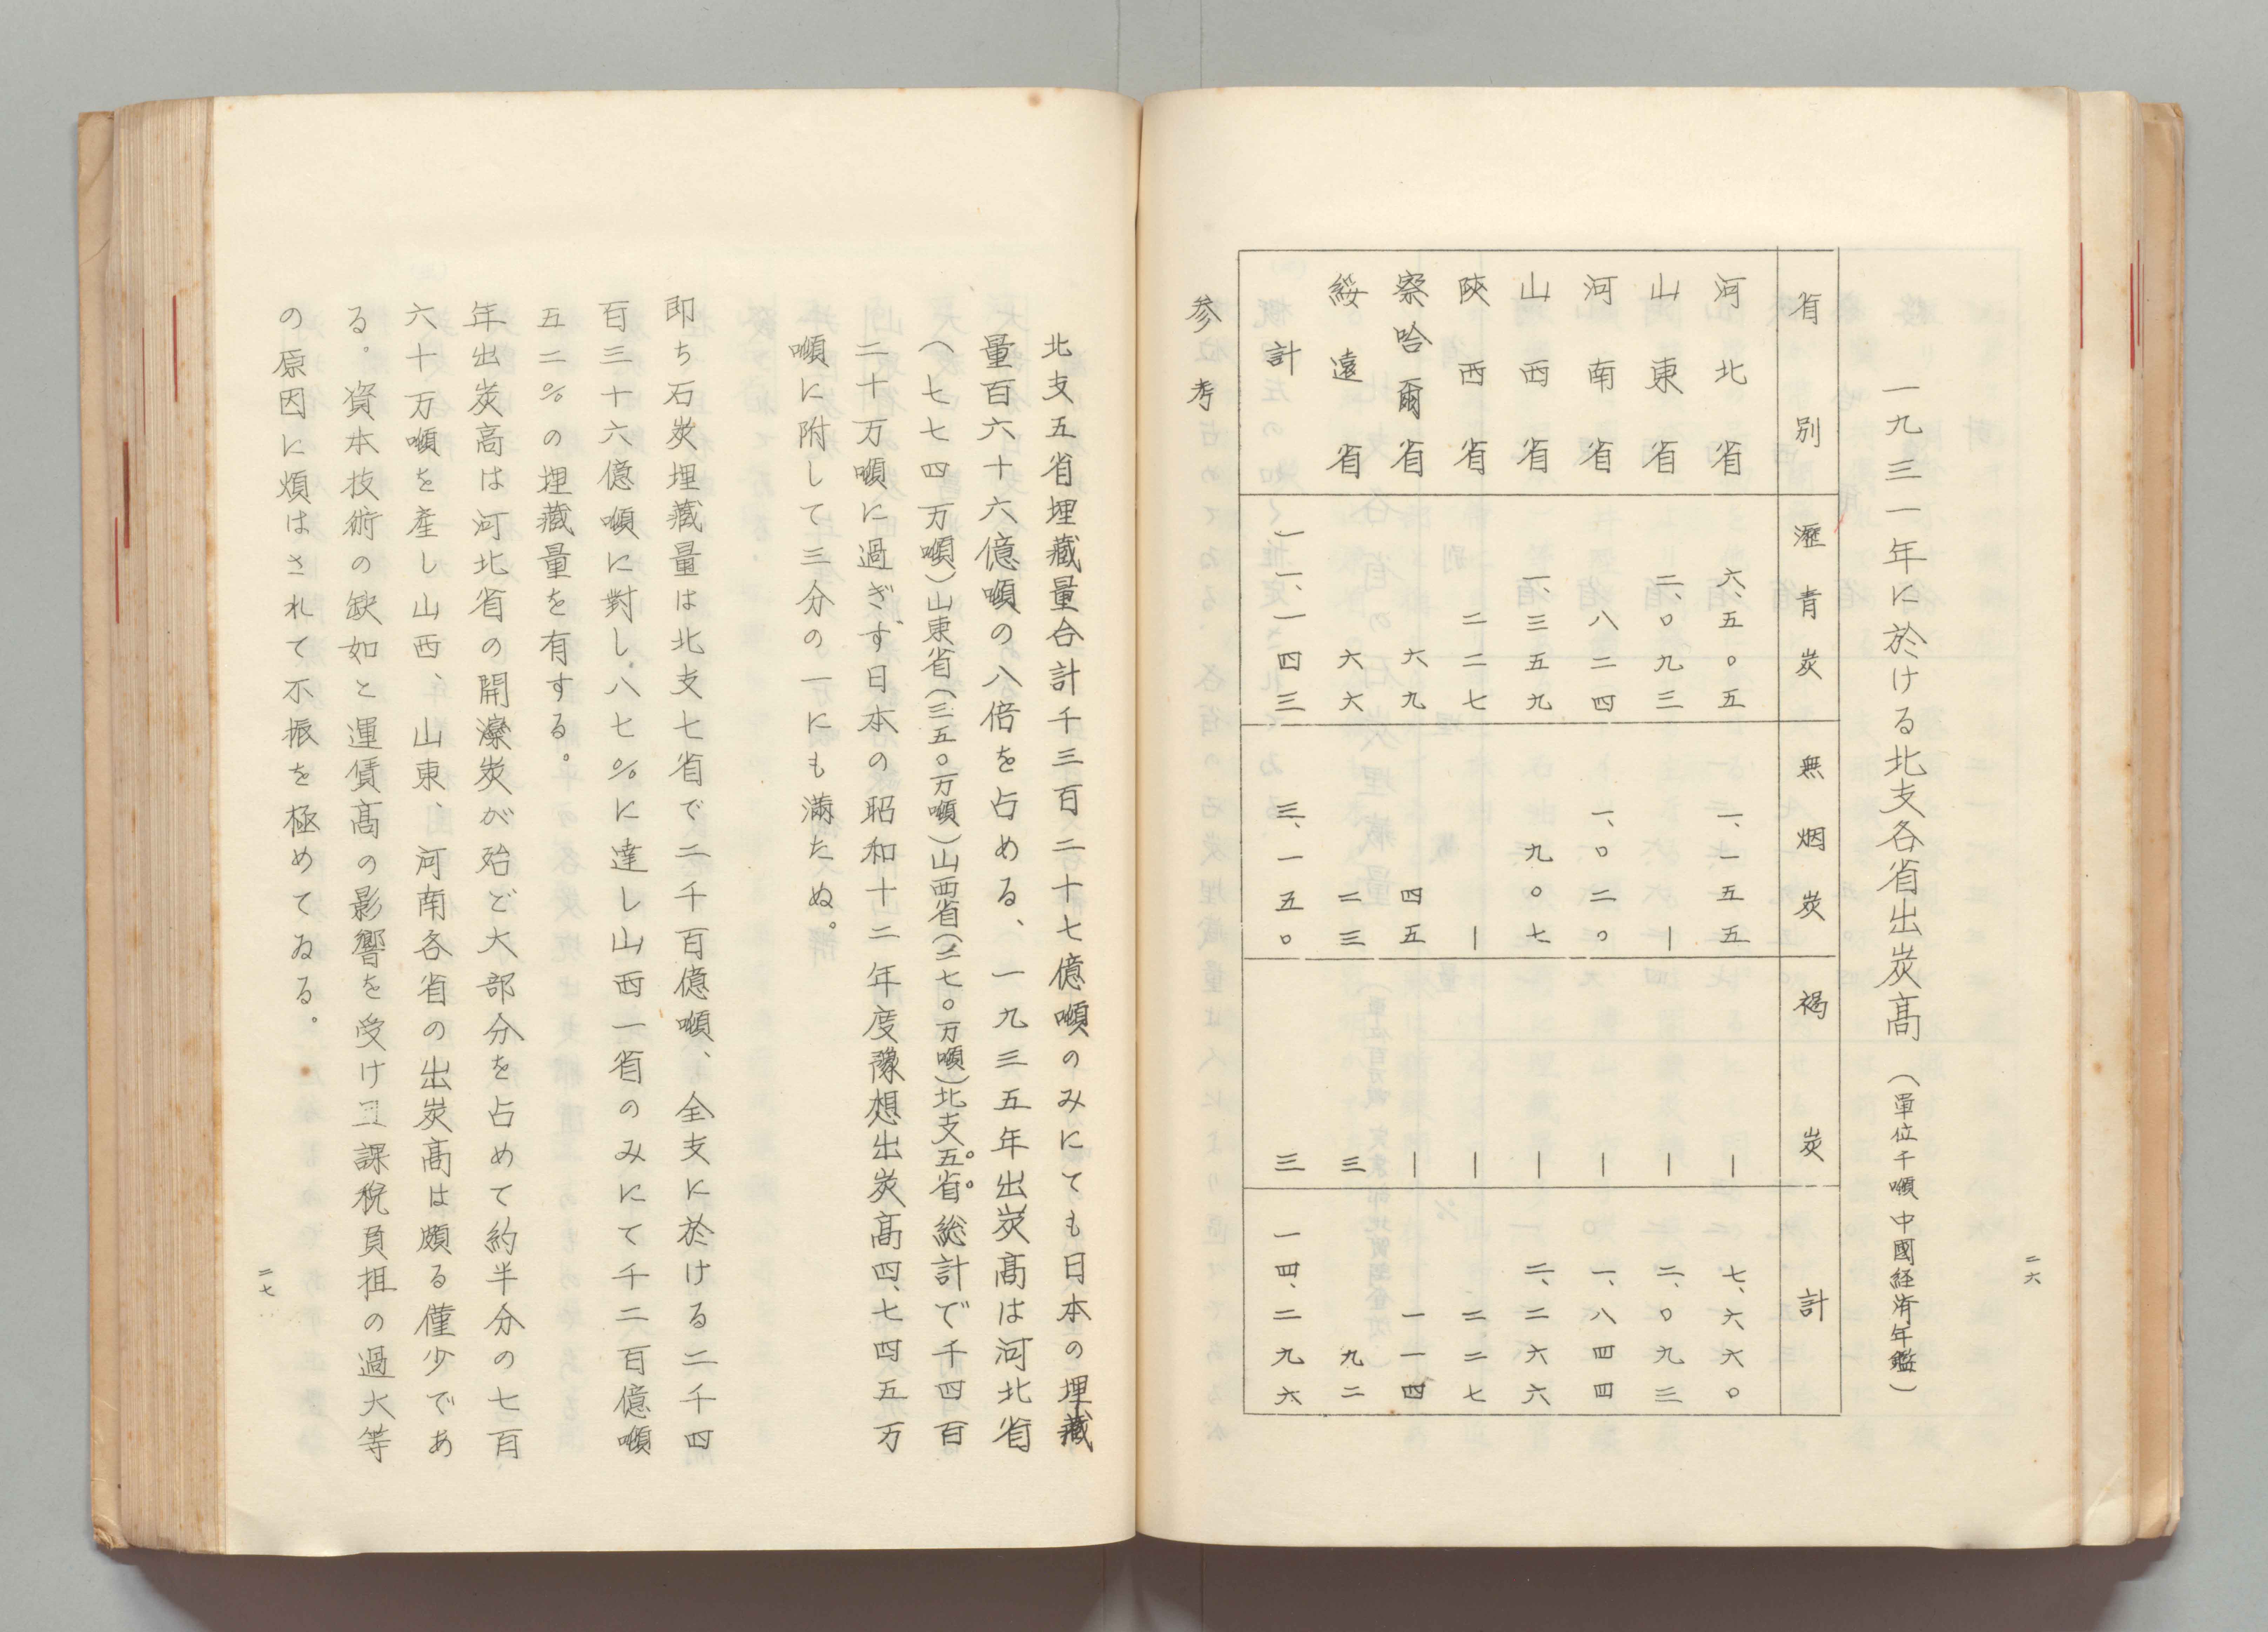 一九三一年に於ける北支各省出炭高（單位千噸 中國経済年鑑）
省別 瀝青炭 無烟炭 褐炭 計
河北省 六、五〇五 一、一五五 ― 七、六六〇
山東省 二、〇九三 ― ― 二、〇九三
河南省 八二四 一、〇二〇 ― 一、八四四
山西省 一、三五九 九〇七 ― 二、二六六
陝西省 二二七 ― ― 二二七
察哈爾省 六九 四五 ― 一一四
綏遠省 六六 二三 三 九二
計 一一、一四三 三、一五〇 三 一四、二九六
参考
二六
北支五省埋藏量合計千三百二十七億噸のみにても日本の埋藏
量百六十六億噸の八倍を占める、一九三五年出炭高は河北省
（七七四万噸）山東省（三五〇万噸）山西省（二七〇万噸）北支五省総計で千四百
二十万噸に過ぎず日本の昭和十二年度豫想出炭高四、七四五万
噸に附して三分の一にも満たぬ。
即ち石炭埋藏量は北支七省で二千百億噸、全支に於ける二千四
百三十六億噸に對し八七％に達し山西一省のみにて千二百億噸
五二％の埋藏量を有する。
年出炭高は河北省の開灤炭が殆ど大部分を占めて約半分の七百
六十万噸を産し山西、山東、河南各省の出炭高は頗る僅少であ
る。資本技術の缺如と運賃高の影響を受け且課税負担の過大等
の原因に煩はされて不振を極めてゐる。
二七